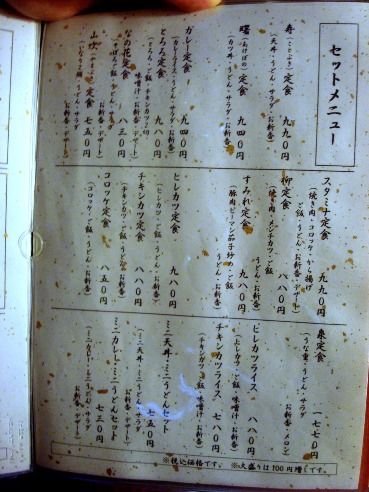 セットメニュー
寿(ことぶき)定食 九九〇円
(天丼・うどん・サラダ
お新香)
曙(あけぼの)定食 九四〇円
(カツ丼・うどん・サラダ
お新香)
カレー定食 九四〇円
(カレーライス・うどん・サラダ・お新香)
とろろ定食 九八〇円
(とろろ・ご飯・チキンカツ二切
味噌汁・お新香)
なの花定食 八三〇円
お新香・デザート)
山吹(やまぶき)定食 七五〇円
(いなり三個・うどん・サラダ
お新香・デザート)
スタミナ定食 九九〇円
(焼き肉・コロッケ・から揚げ
ご飯・うどん・お新香・デザート)
柳定食 八八〇円
(焼き肉・メンチカツ・ご飯
うどん・お新香)
すみれ定食 九八〇円
(豚肉ピーマン茄子炒め・ご飯
うどん・お新香)
ヒレカツ定食 九八〇円
(ヒレカツ・ご飯・うどん・お新香)
チキンカツ定食 八八〇円
(チキンカツ・ご飯・うどん・お新香)
コロッケ定食 八五〇円
(コロッケ・ご飯・うどん・お新香)
泉定食 一七七〇円
(うな重・うどん・サラダ
お新香・メロン)
ヒレカツライス 八八〇円
(ヒレカツ・ご飯・味噌汁・お新香)
チキンカツライス 七八〇円
(チキンカツ・ご飯・味噌汁・お新香)
ミニ天丼・ミニうどんセット
七五〇円
(ミニ天丼・ミニうどん・サラダ
お新香・デザート)
ミニカレー・ミニうどんセット
七三〇円
(ミニカレー・ミニうどん・サラダ
お新香・デザート)
※税込価格です。 ※大盛りは100円増しです。